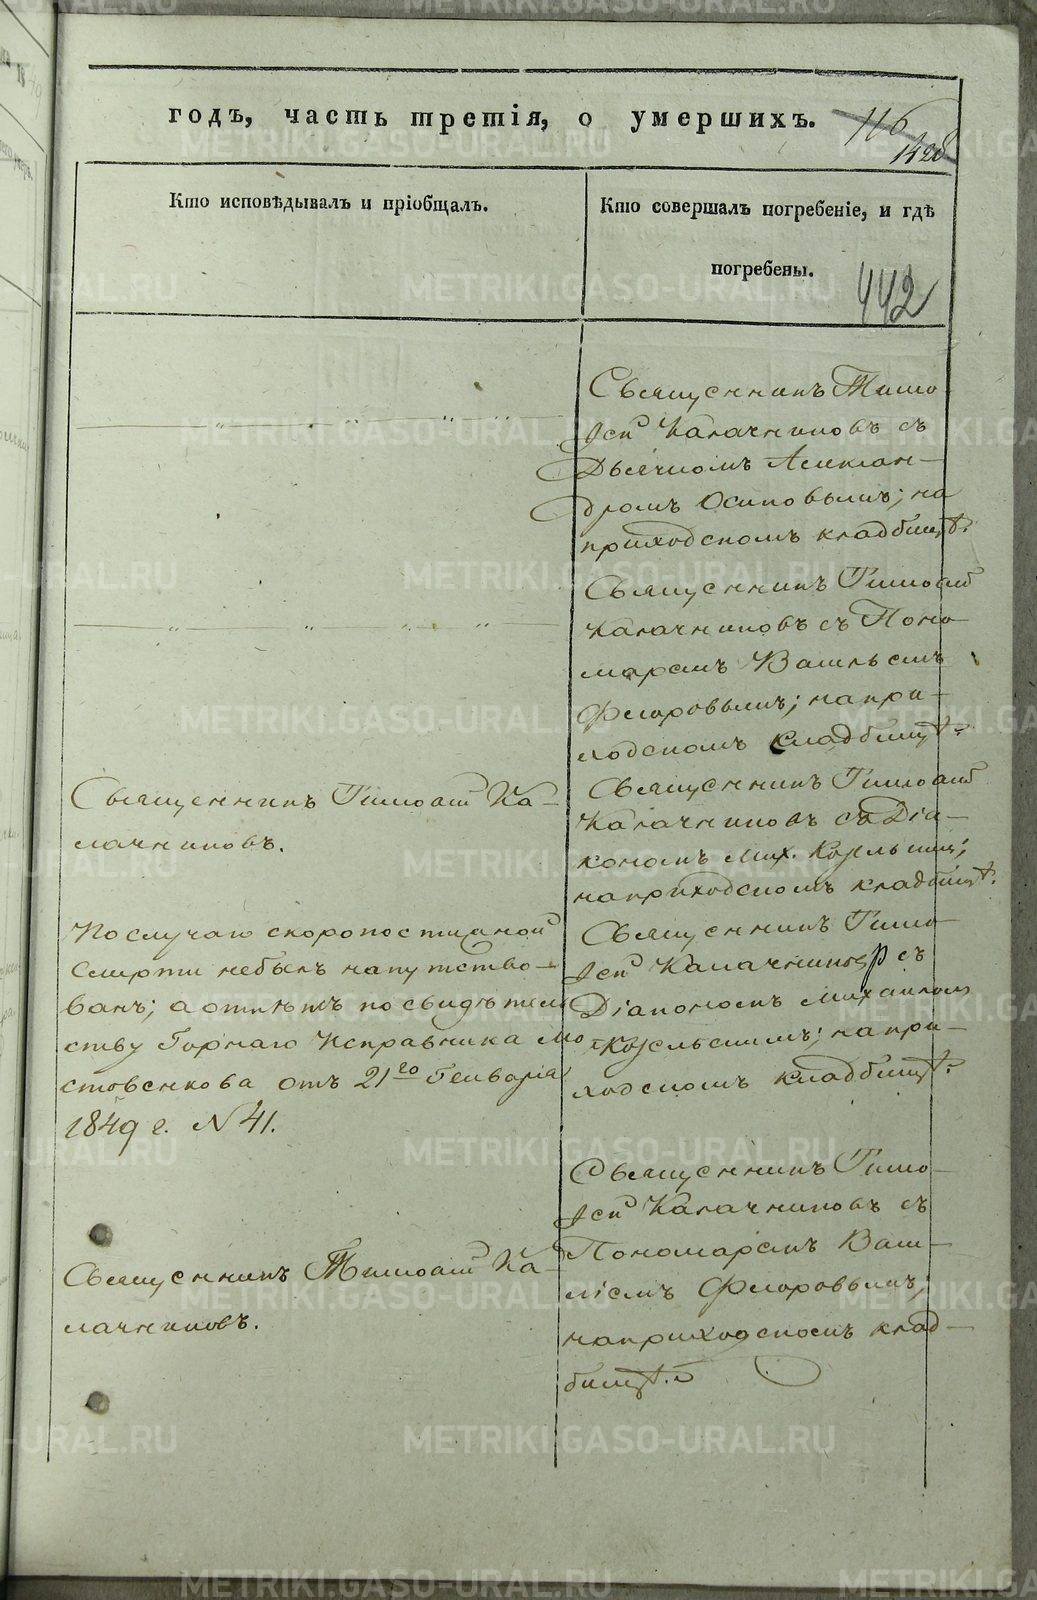 годъ, часть третія, о умершихъ.
116
Кто исповѣдывалъ и пріобщалъ.
Кто совершалъ погребеніе, и гдѣ
погребены.
442
Священникъ Тимо-
ѳей Калачниковъ съ
Дьячкомъ Алексан-
дромъ Осиповымъ; на
приходскомъ кладбищѣ.
Священникъ Тимоѳей
Калачниковъ съ Поно-
маремъ Васильемъ
Флоровымъ; на при-
ходскомъ кладбищѣ.
Священникъ Тимоѳей Ка-
лачниковъ.
Священникъ Тимоѳей
Калачниковъ съ Діа-
кономъ Мих. Козельскимъ;
на приходскомъ кладбищѣ.
По случаю скоропостижной
смерти небылъ напутство-
ванъ; а отпѣтъ по свидѣтель
ству Горнаго Исправника Мо
стовенкова отъ 21го Генваря
1849 г. № 41.
Священникъ Тимо-
ѳей Калачниковъ съ
Діакономъ Михаиломъ
Козельскимъ; на при-
ходскомъ кладбищѣ.
Священникъ Тимоѳей Ка-
лачниковъ.
Священникъ Тимо-
ѳей Калачниковъ съ
Пономаремъ Васи-
ліемъ Флоровымъ;
на приходскомъ клад-
бищѣ.
METRIKI.GASO-URAL.RU